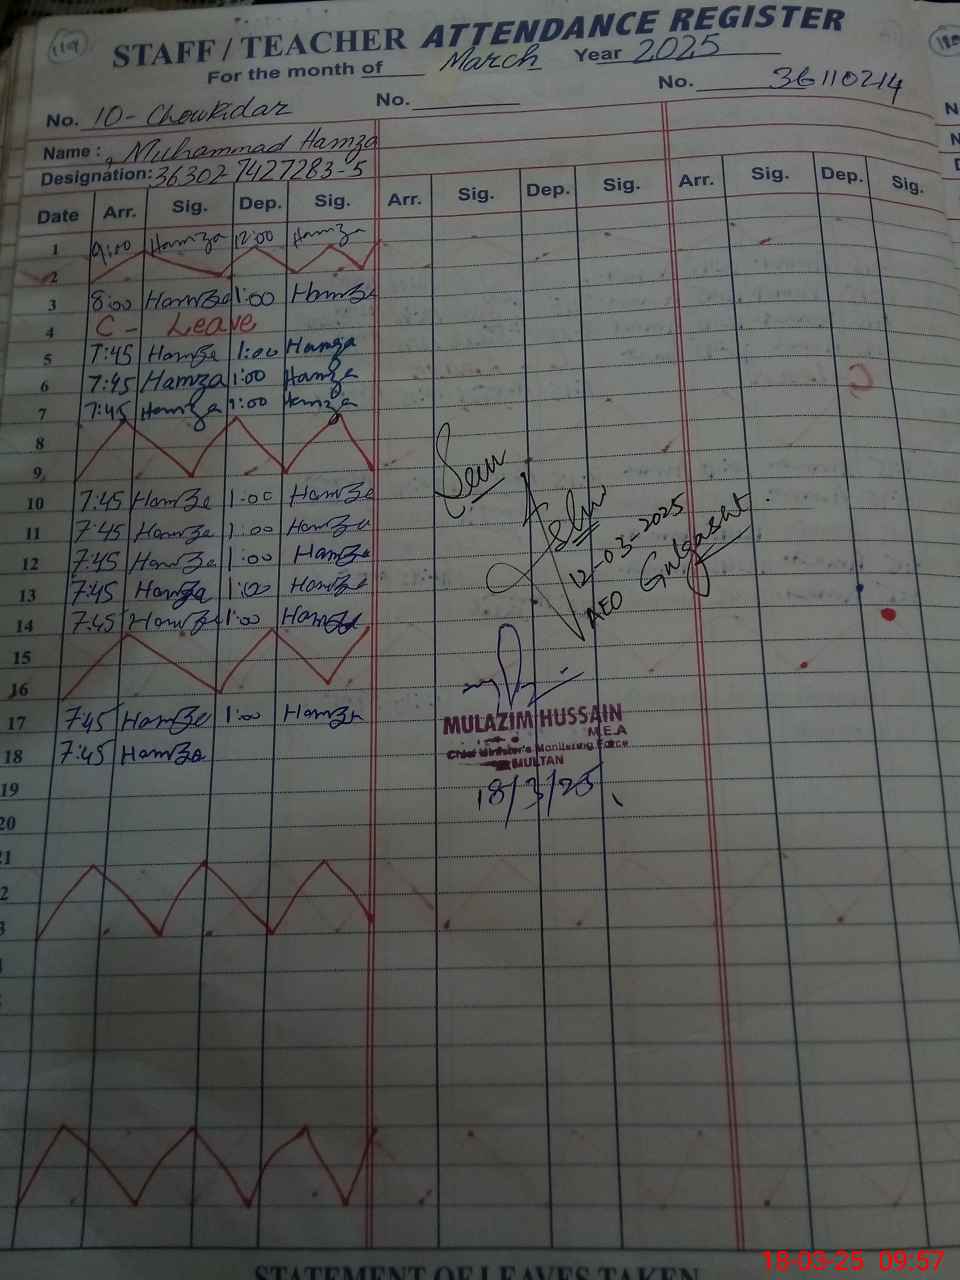 119
STAFF / TEACHER ATTENDANCE REGISTER
For the month of March Year 2025
No. 10- Chowkidar No. No. 36110214
Name : Muhammad Hamza
Designation: 36302 7427283-5
Date Arr. Sig. Dep. Sig. Arr. Sig. Dep. Sig. Arr. Sig. Dep. Sig.
1 9:00 Hamza 12:00 Hamza
2
3 8:00 Hamza 1:00 Hamza
4 C - Leave
5 7:45 Hamza 1:00 Hamza
6 7:45 Hamza 1:00 Hamza
7 7:45 Hamza 1:00 Hamza
8
9
10 7:45 Hamza 1:00 Hamza
11 7:45 Hamza 1:00 Hamza
12 7:45 Hamza 1:00 Hamza
13 7:45 Hamza 1:00 Hamza
14 7:45 Hamza 1:00 Hamza
15
16
17 7:45 Hamza 1:00 Hamza
18 7:45 Hamza
19
20
21
2
3
Seen
12-03-2025
AEO Gulgasht
MULAZIM HUSSAIN
M.E.A
Chief Minister's Monitoring Force
MULTAN
18/3/25
STATEMENT OF LEAVES TAKEN
18-03-25 09:57